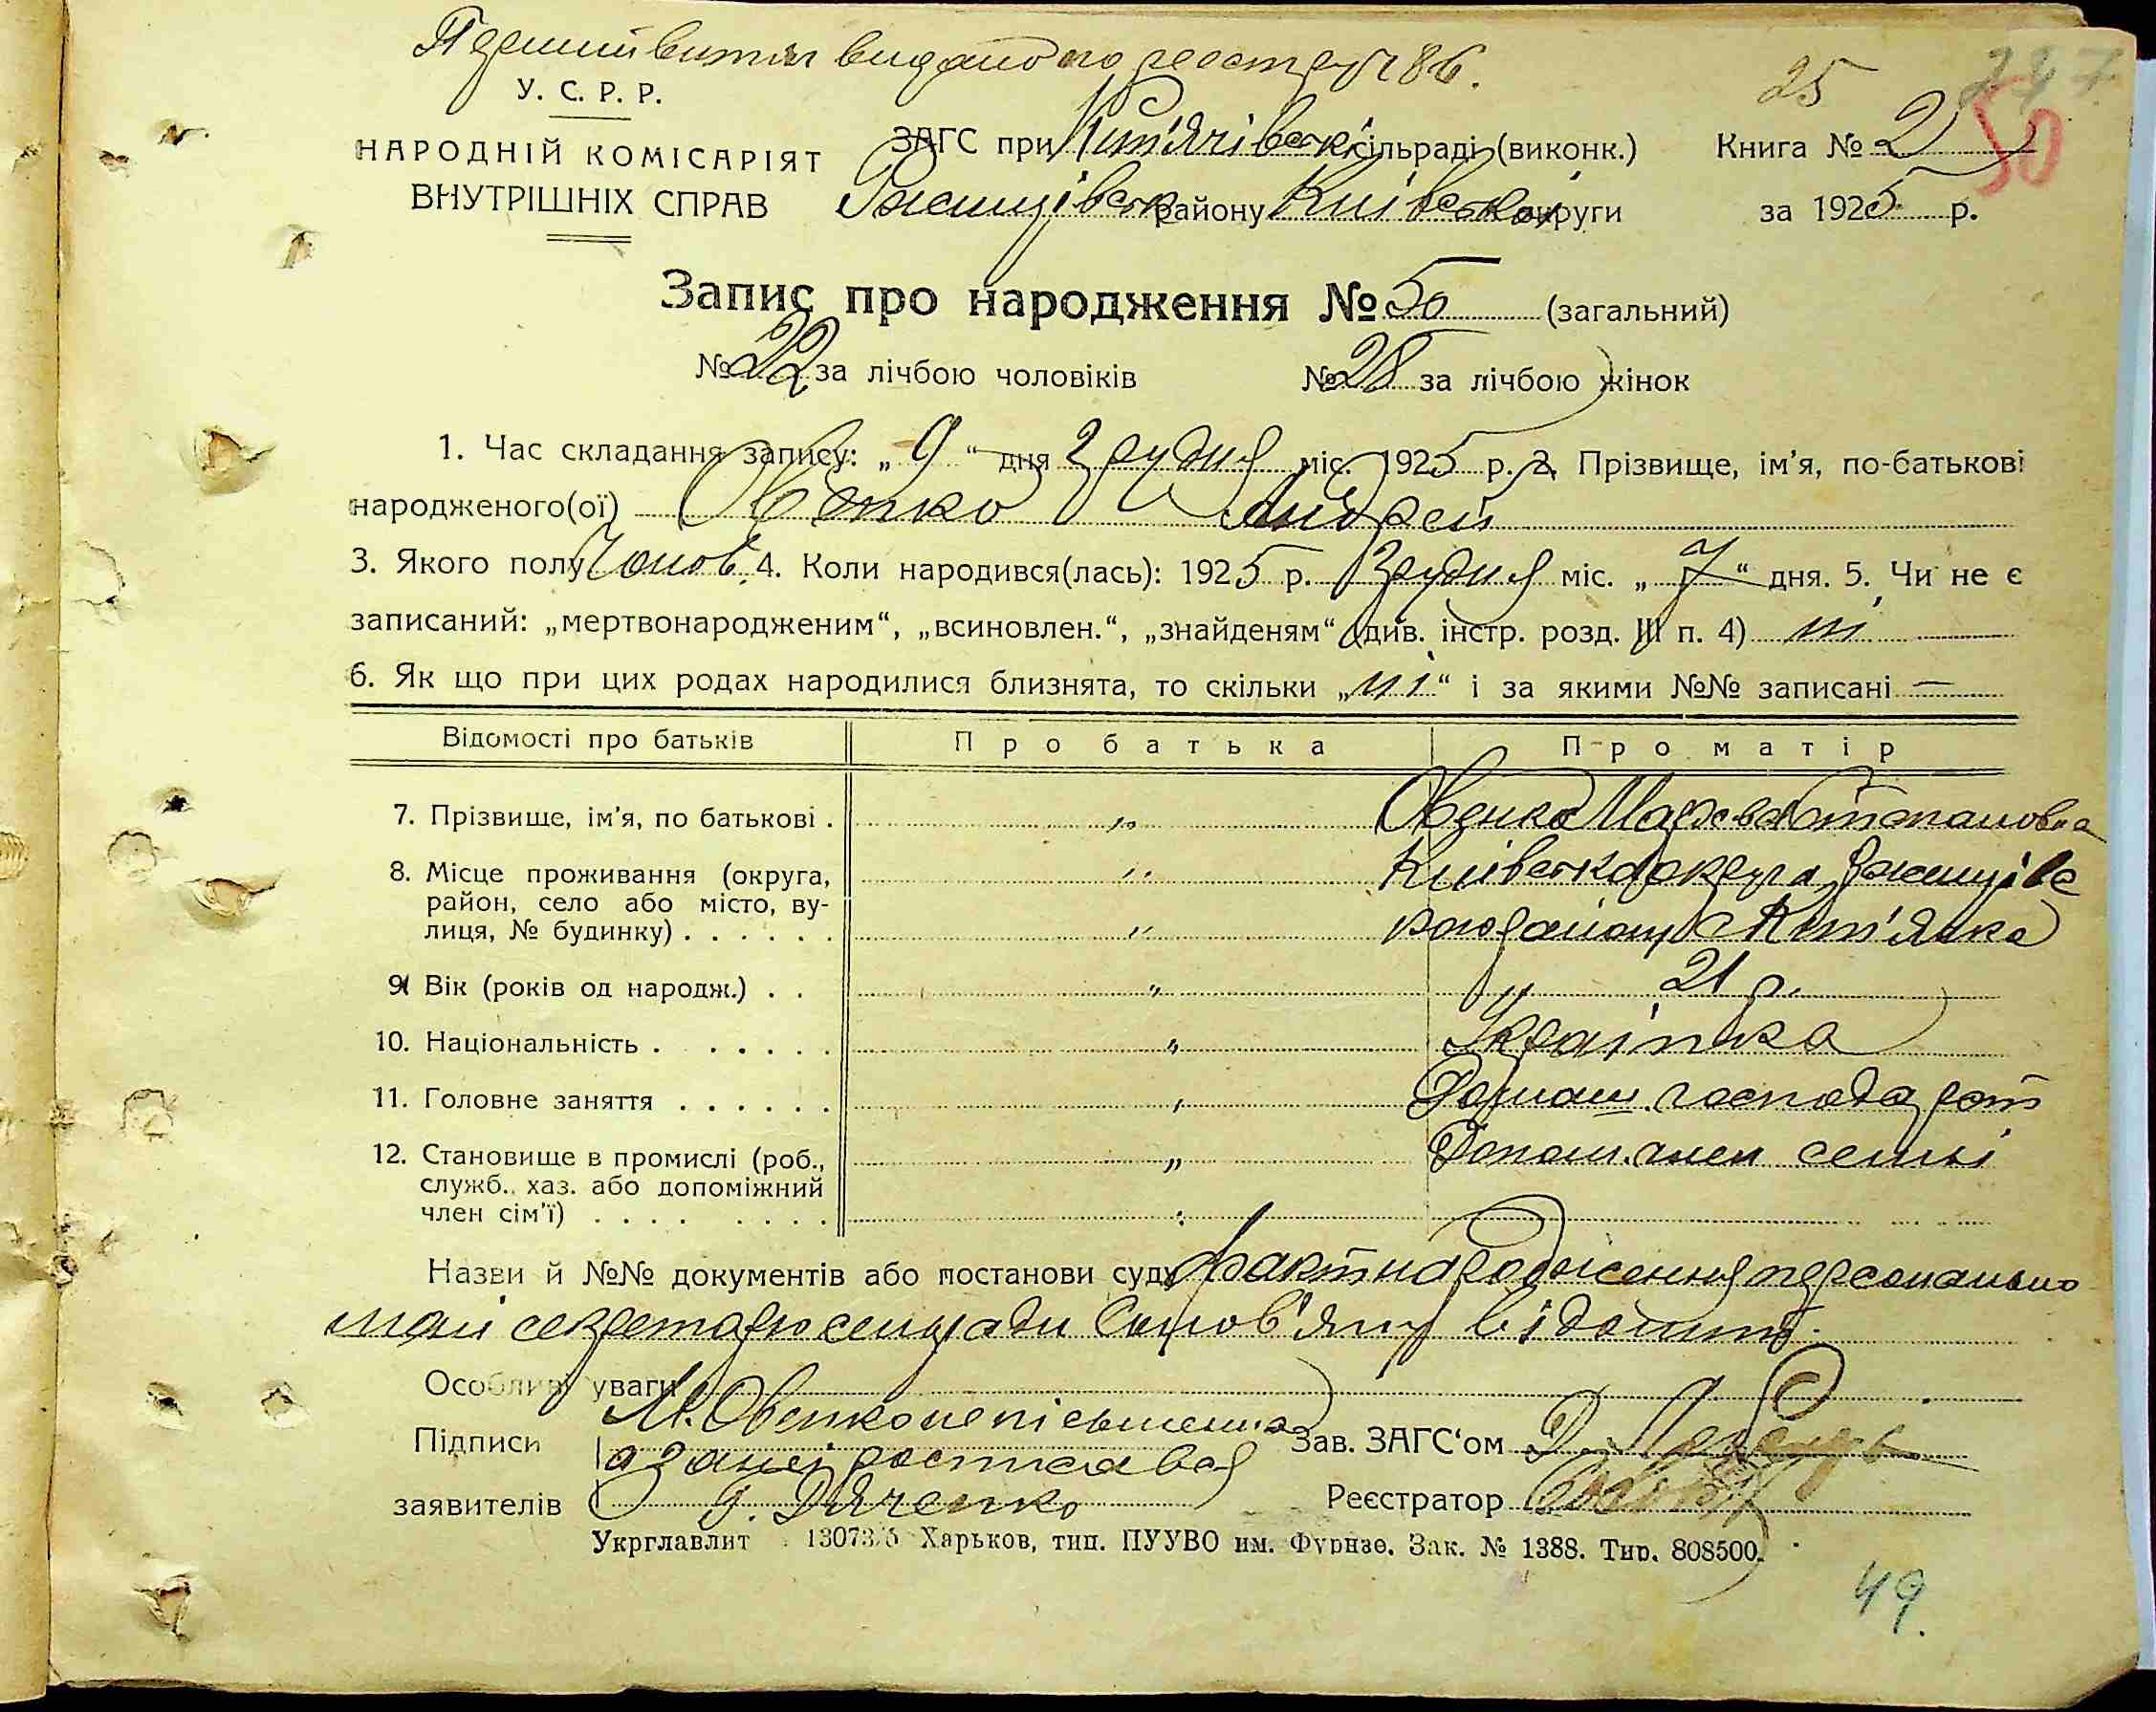 Перший витяг видано по реестру 186.
25
У. С. Р. Р.
НАРОДНІЙ КОМІСАРІЯТ
ВНУТРІШНІХ СПРАВ
ЗАГС при Кит'ячівськ. сільраді (виконк.)
Ржищівськ району Київської округи
Книга № 2
50
за 1925 р.
Запис про народження № 50 (загальний)
№ 22 за лічбою чоловіків № 28 за лічбою жінок
1. Час складання запису: „ 9 “ дня Грудня міс. 1925 р. 2. Прізвище, ім’я, по-батькові
народженого(ої) Овенко Андрей
3. Якого полу Чолов. 4. Коли народився(лась): 1925 р. Грудня міс. „ 7 “ дня. 5. Чи не є
записаний: „мертвонародженим“, „всиновлен.“, „знайденям“ (див. інстр. розд. III п. 4) ні
6. Як що при цих родах народилися близнята, то скільки „ ні “ і за якими №№ записані —
Відомості про батьків Про батька Про матір
7. Прізвище, ім’я, по батькові . „ Овенко Степановна
8. Місце проживання (округа, „ Київська округа Ржищівс
район, село або місто, ву-
лиця, № будинку) . . . . . . „ кого району
9. Вік (років од народж.) . . „ 21 р.
10. Національність . . . . . . „ Українка
11. Головне заняття . . . . . . „ Домаш. господарст
12. Становище в промислі (роб., „ Допом. член семьі
служб., хаз. або допоміжний
член сім’ї) . . . . . . . . „
Назви й №№ документів або постанови суду факт народження персонально
мені секретарю сельради Солов'яну відомий.
Особливі уваги
Підписи М. Овенко неписьменна
а за неї росписався
заявителів Г. Дяченко
Зав. ЗАГС‘ом
Реєстратор
Укрглавлит 13073/б Харьков, тип. ПУУВО им. Фрунзе. Зак. № 1388. Тир. 808500.
49